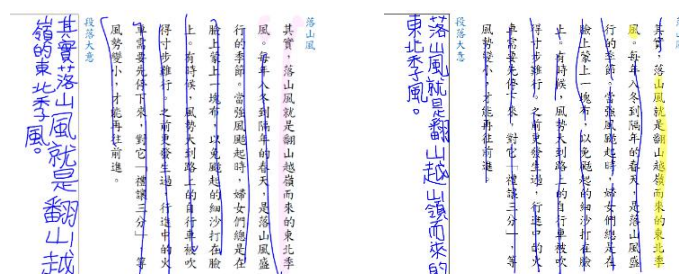 落山風
其實，落山風就是翻山越嶺而來的東北季
風。每年入冬到隔年的春天，是落山風盛
行的季節。當強風颳起時，婦女們總是在
臉上蒙上一塊布，以免颳起的細沙打在臉
上。有時候，風勢大到路上的自行車被吹
得寸步難行。之前更發生過，行進中的火
車需要先停下來，對它「禮讓三分」，等
風勢變小，才能再往前進。
段落大意
其實落山風就是翻山越
嶺的東北季風。
山風
其實，落山風就是翻山越嶺而來的東北季
風。每年入冬到隔年的春天，是落山風盛
行的季節。當強風颳起時，婦女們總是在
臉上蒙上一塊布，以免颳起的細沙打在臉
上。有時候，風勢大到路上的自行車被吹
得寸步難行。之前更發生過，行進中的火
車需要先停下來，對它「禮讓三分」，等
風勢變小，才能再往前進。
段落大意
落山風就是翻山越嶺而來的
東北季風。